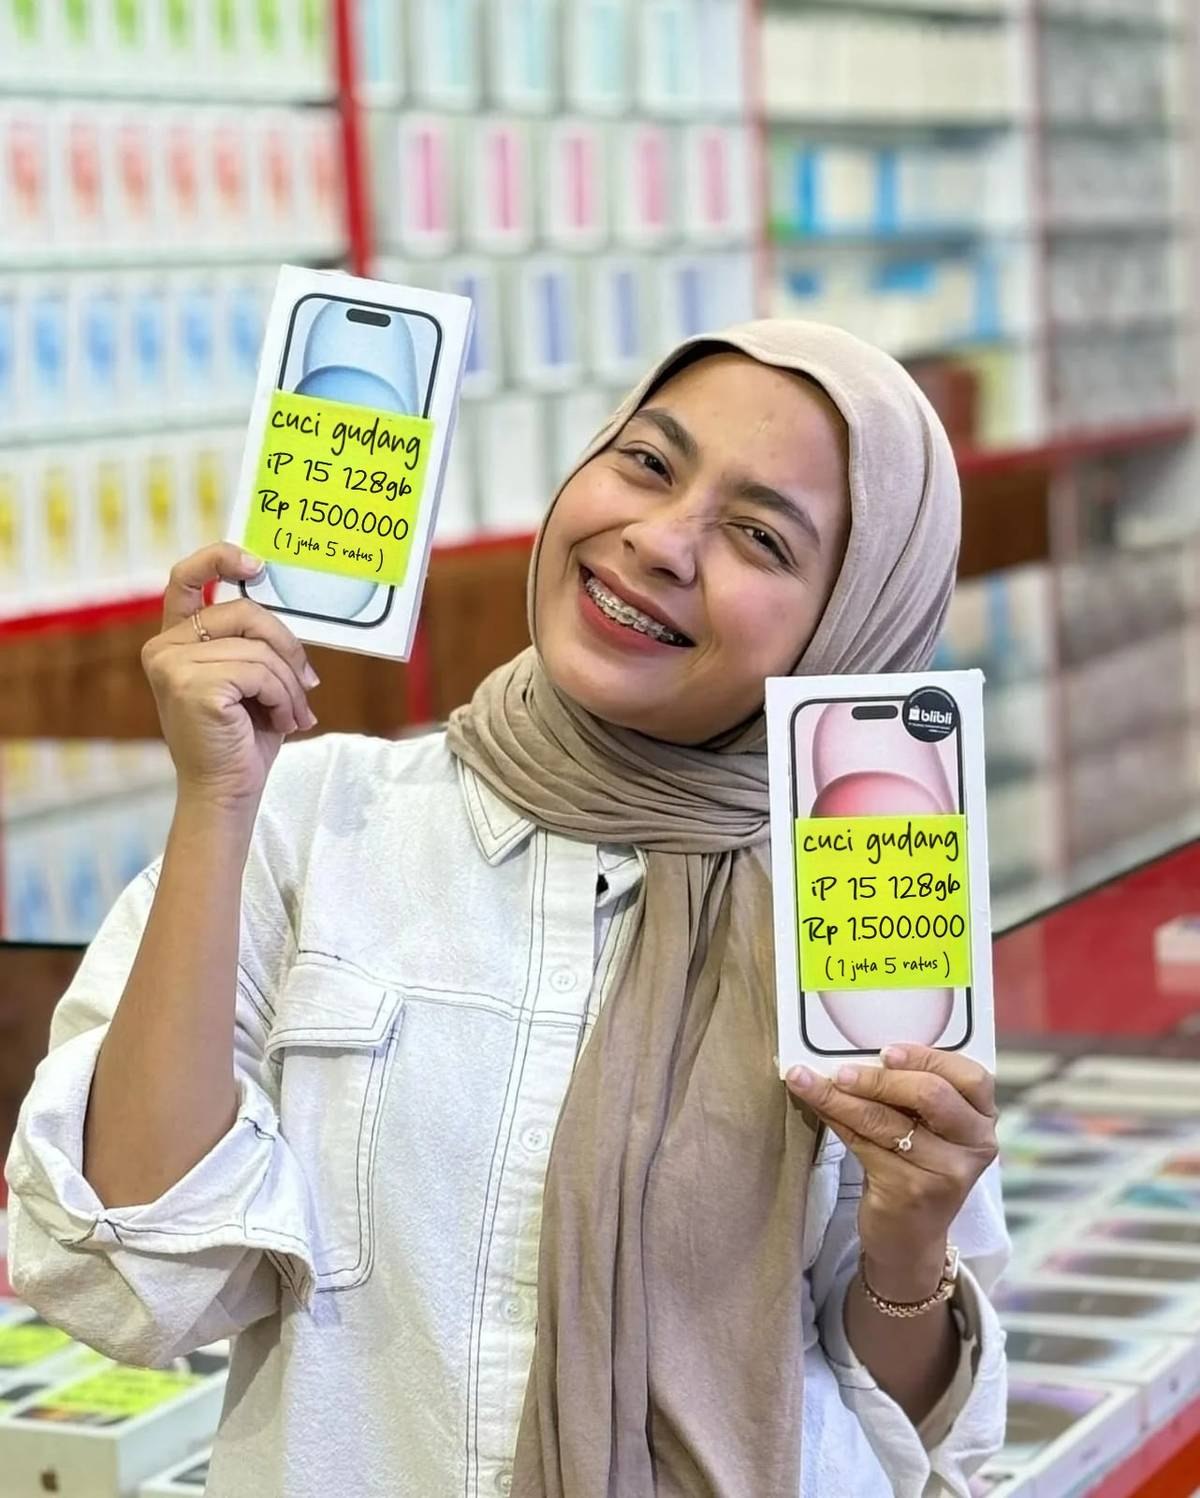 cuci gudang
iP 15 128gb
Rp 1.500.000
(1 juta 5 ratus)
blibli
cuci gudang
iP 15 128gb
Rp 1.500.000
(1 juta 5 ratus)